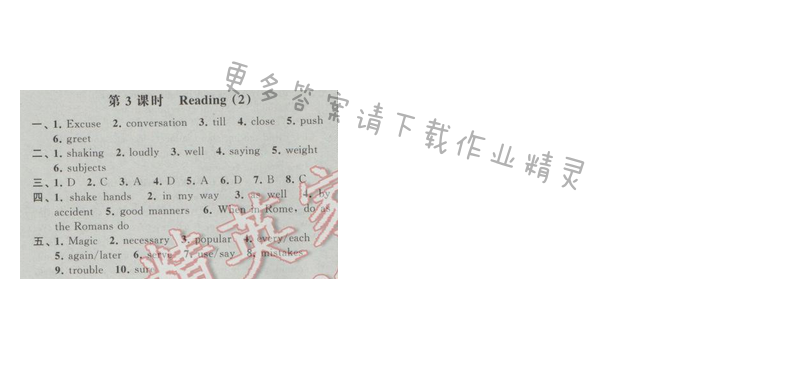 更多答案请下载作业精灵
第 3 课时 Reading (2)
一、1. Excuse 2. conversation 3. till 4. close 5. push
6. greet
二、1. shaking 2. loudly 3. well 4. saying 5. weight
6. subjects
三、1. D 2. C 3. A 4. D 5. A 6. D 7. B 8. C
四、1. shake hands 2. in my way 3. as well 4. by
accident 5. good manners 6. When in Rome, do as
the Romans do
五、1. Magic 2. necessary 3. popular 4. every/each
5. again/later 6. serve 7. use/say 8. mistakes
9. trouble 10. sure
精英家